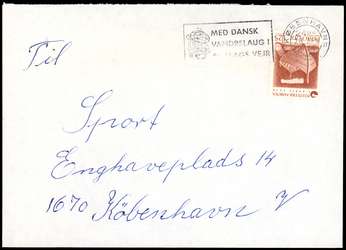 MED DANSK
VANDRELAUG I
KØBENHAVN
Til
Sport
Enghaveplads 14
1670 København V